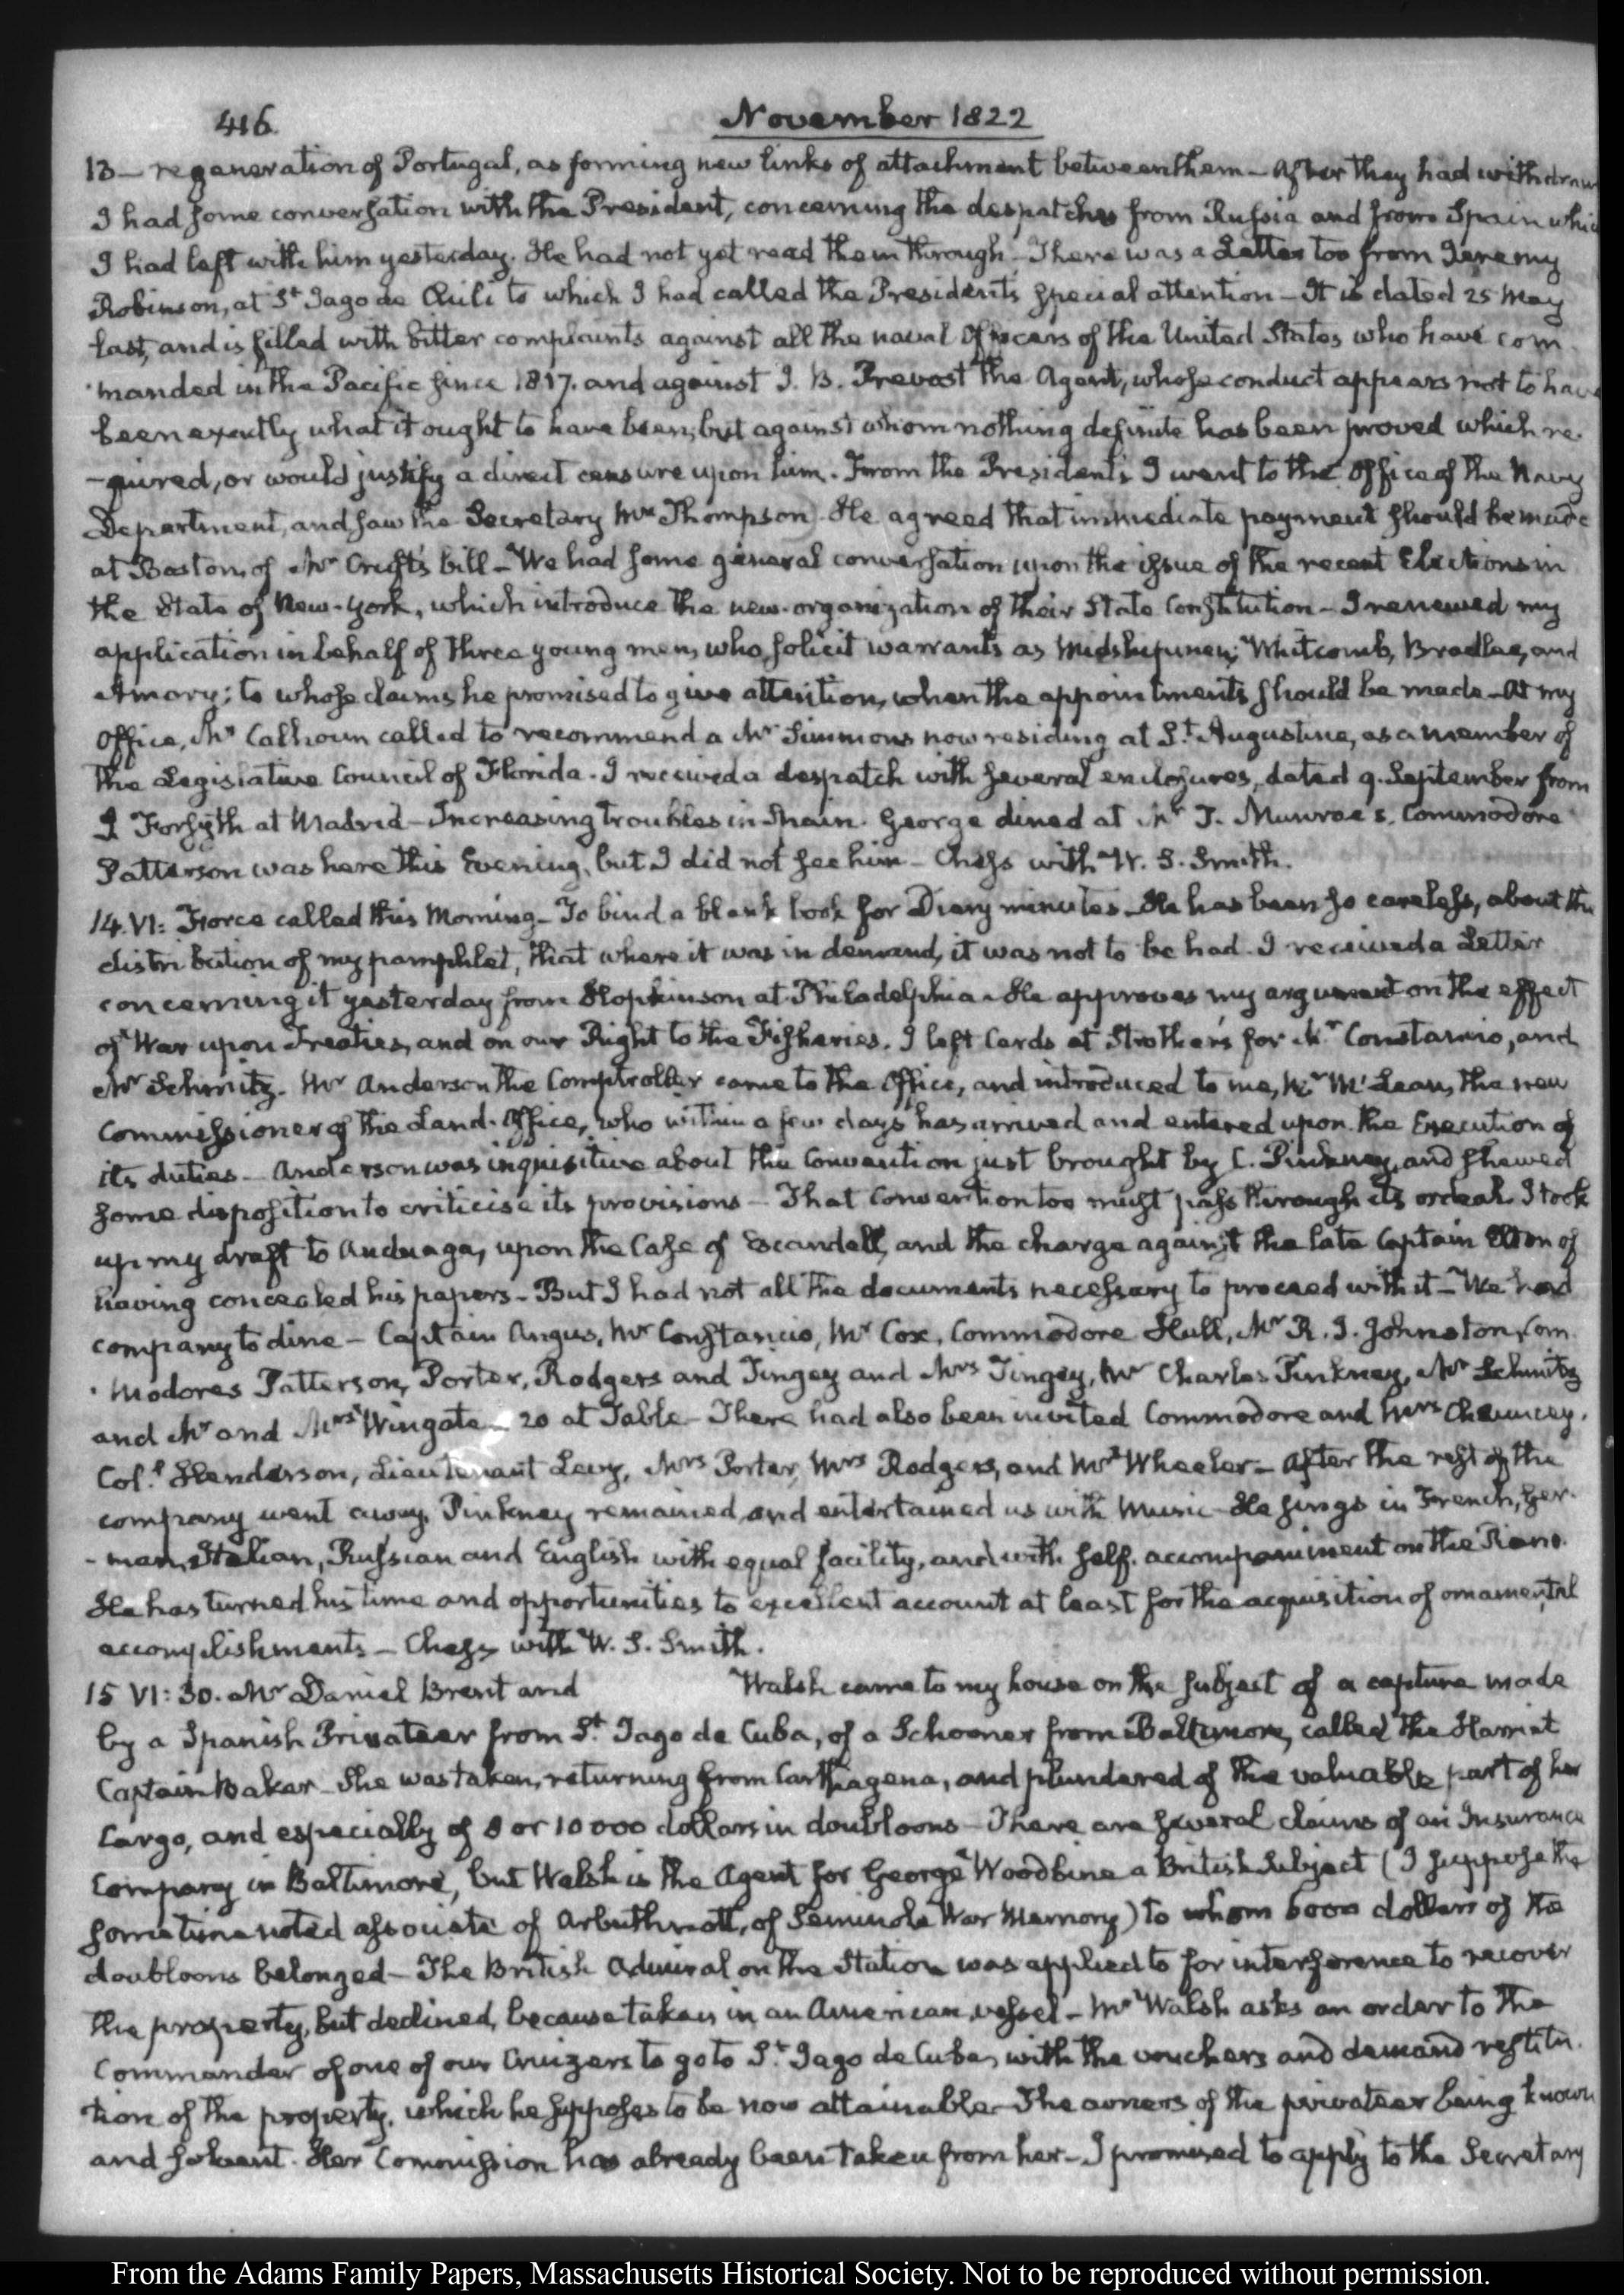 416.
November 1822
13 — regeneration of Portugal, as forming new links of attachment between them — After they had withdrawn
I had some conversation with the President, concerning the despatches from Russia and from Spain which
I had left with him yesterday. He had not yet read them through — There was a Letter too from Jeremy
Robinson, at St. Jago de Chili to which I had called the President's special attention — It is dated 25 May
last, and is filled with bitter complaints against all the naval Officers of the United States who have com
manded in the Pacific since 1817. and against J. B. Prevost the Agent, whose conduct appears not to have
been exactly what it ought to have been; but against whom nothing definite has been proved which re-
-quired, or would justify a direct censure upon him. From the President's I went to the Office of the Navy
Department, and saw the Secretary Mr Thompson. He agreed that immediate payment should be made
at Boston, of Mr Cruft's bill — We had some general conversation upon the issue of the recent Elections in
the State of New-York, which introduce the new organization of their State Constitution — I renewed my
application in behalf of three young men, who solicit warrants as Midshipmen; Whitcomb, Bradlee, and
Amory; to whose claims he promised to give attention, when the appointments should be made — At my
Office, Mr Calhoun called to recommend a Mr Simmons now residing at St. Augustine, as a member of
the Legislative Council of Florida. I received a despatch with several enclosures, dated 9. September from
J Forsyth at Madrid — Increasing troubles in Spain. George dined at Mr T. Munroe's. Commodore
Patterson was here this Evening, but I did not see him — Chess with W. S. Smith.
14. VI: Force called this Morning — To bind a blank book for Diary minutes — He has been so careless, about the
distribution of my pamphlet, that where it was in demand, it was not to be had. I received a Letter
concerning it yesterday from Hopkinson at Philadelphia. He approves my argument on the effect
of War upon Treaties, and on our Right to the Fisheries. I left Cards at Strother's for Mr Constancio, and
Mr Schmitz. Mr Anderson the Comptroller came to the Office, and introduced to me, Mr McLean, the new
Commissioner of the Land-Office, who within a few days has arrived and entered upon the Execution of
its duties — Anderson was inquisitive about the Convention just brought by C. Pinkney, and shewed
some disposition to criticise its provisions — That Convention too must pass through its ordeal. I took
up my draft to Anduaga, upon the Case of Escandell, and the charge against the late Captain Elton of
having concealed his papers — But I had not all the documents necessary to proceed with it — We had
company to dine — Captain Angus, Mr Constancio, Mr Cox, Commodore Hull, Mr R. J. Johnston, Com
modores Patterson, Porter, Rodgers and Tingey and Mrs Tingey, Mr Charles Pinkney, Mr Schmitz
and Mr and Mrs Wingate — 20 at Table — There had also been invited Commodore and Mrs Chauncey.
Col.l Henderson, Lieutenant Levy, Mrs Porter, Mrs Rodgers, and Mrs Wheeler — After the rest of the
company went away, Pinkney remained, and entertained us with Music — He sings in French, Ger-
-man, Italian, Russian and English with equal facility, and with self-accompaniment on the Piano.
He has turned his time and opportunities to excellent account at least for the acquisition of ornamental
accomplishments — Chess with W. S. Smith.
15 VI:30. Mr Daniel Brent and Walsh came to my house on the subject of a capture made
by a Spanish Privateer from St. Jago de Cuba, of a Schooner from Baltimore, called the Harriet
Captain Baker — She was taken, returning from Carthagena, and plundered of the valuable part of her
Cargo, and especially of 8 or 10000 dollars in doubloons — There are several claims of an Insurance
Company in Baltimore, but Walsh is the Agent for George Woodbine a British Subject (I suppose the
sometime noted associate of Arbuthnott, of Seminole War Memory) to whom 6000 dollars of the
doubloons belonged — The British Admiral on the Station was applied to for interference to recover
the property, but declined, because taken in an American vessel — Mr Walsh asks an order to the
Commander of one of our Cruizers to go to St. Jago de Cuba, with the vouchers and demand restitu-
tion of the property, which he supposes to be now attainable — The owners of the privateer being known
and solvent. Her Commission has already been taken from her — I promised to apply to the Secretary
From the Adams Family Papers, Massachusetts Historical Society. Not to be reproduced without permission.